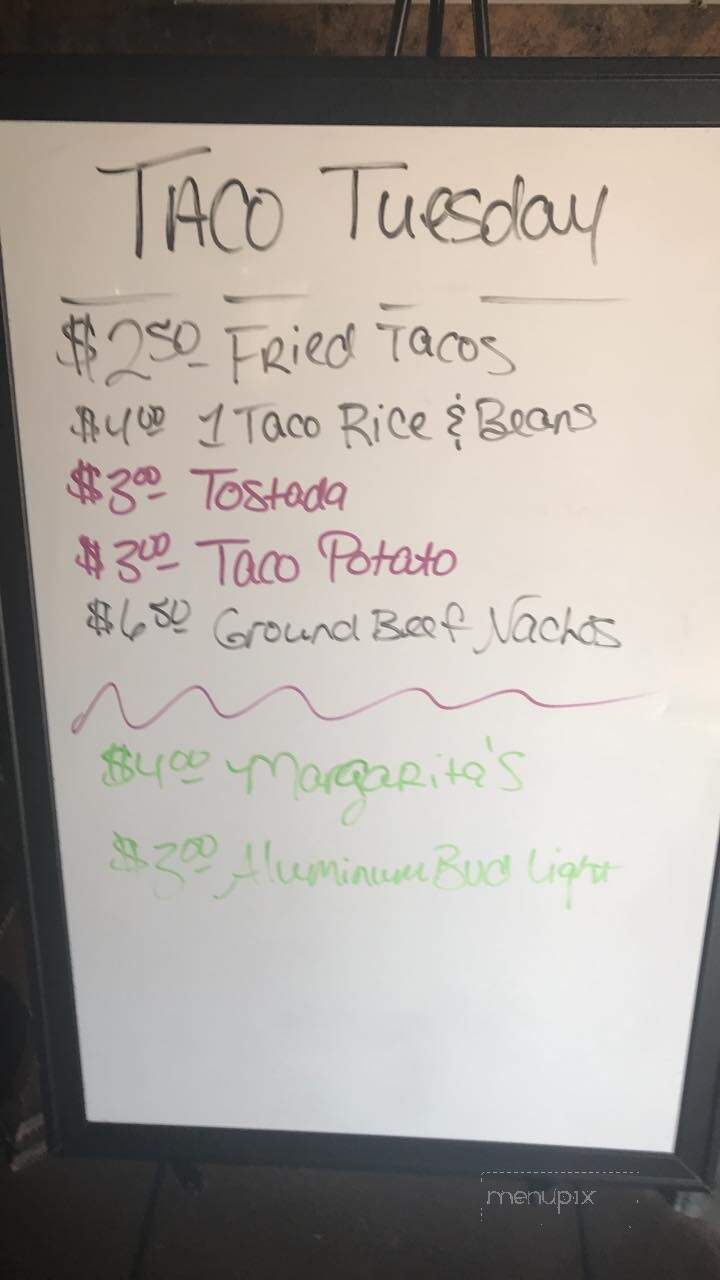 TACO Tuesday
$2.50 Fried Tacos
$4.00 1 Taco Rice & Beans
$3.00 Tostada
$3.00 Taco Potato
$6.50 Ground Beef Nachos
$4.00 Margarita's
$3.00 Aluminum Bud Light
menupix